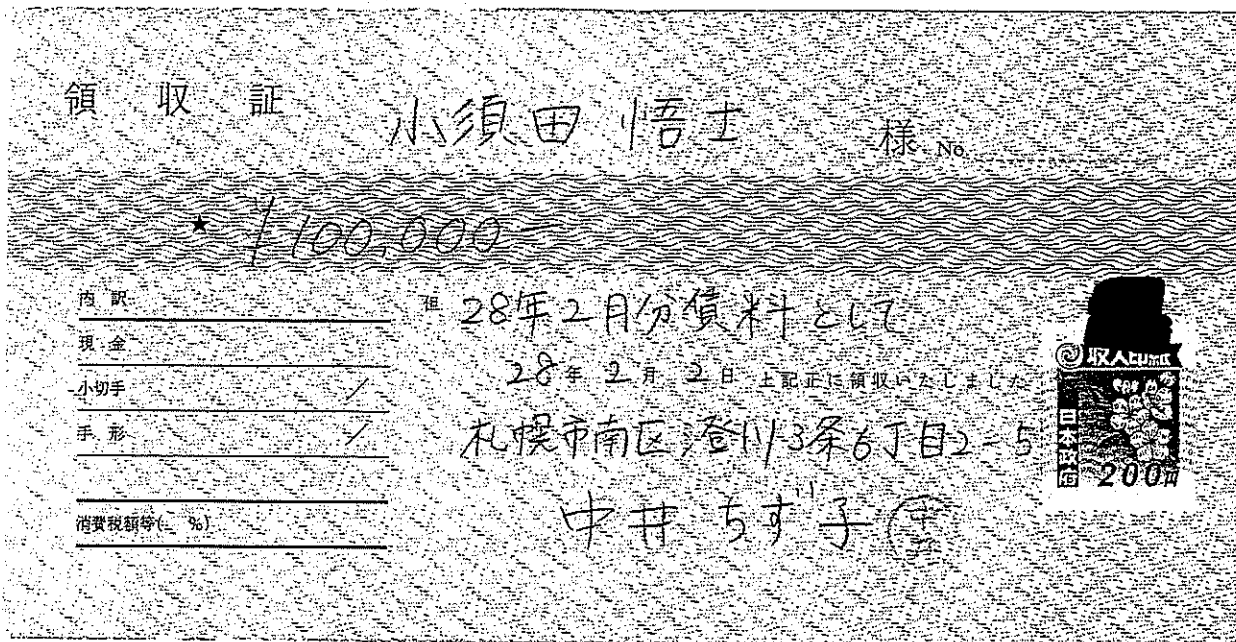 領収証 小須田 悟士 様 No.
★ ¥100,000-
内訳
現金
小切手 /
手形 /
消費税額等( %)
但 28年2月分賃料として
28年 2月 2日 上記正に領収いたしました
札幌市南区澄川3条6丁目2-5
中井 ちず子
収入印紙
日本政府
200円